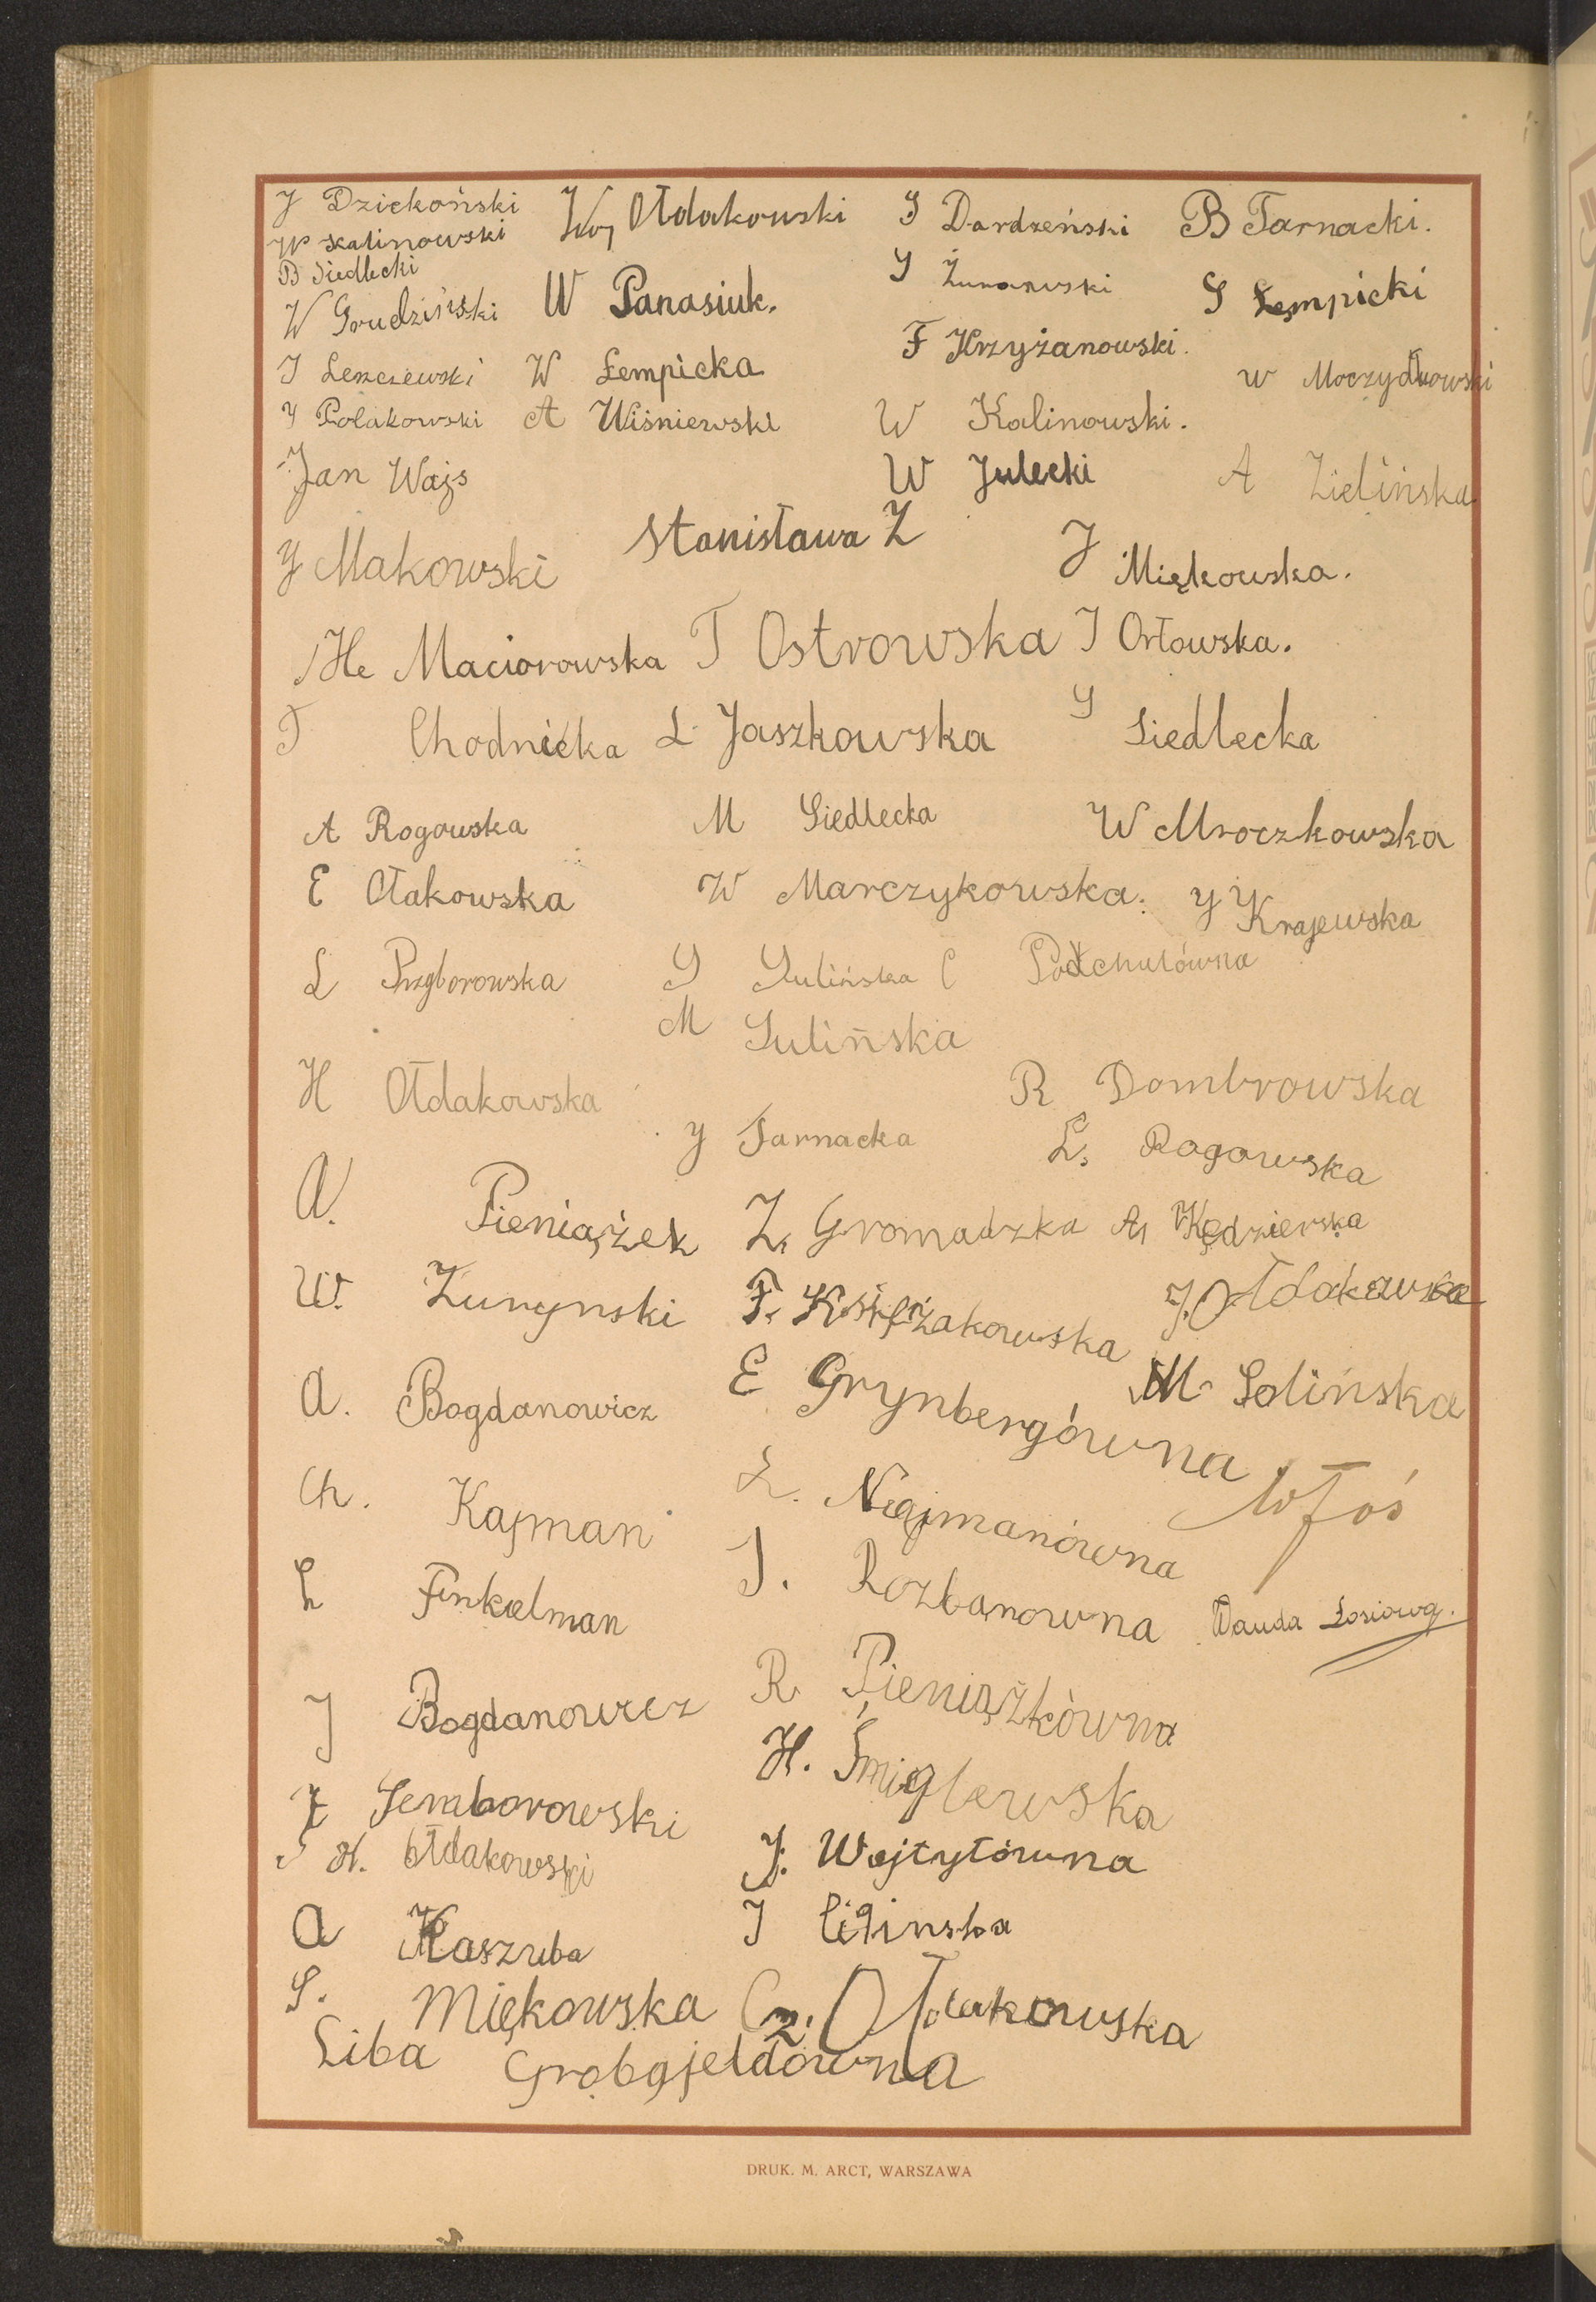 J Dziekoński Woj Ołdakowski J Dardzeński B Tarnacki.
W Kalinowski
B Siedlecki
W Grudziński W Panasiuk. J Żurawski S Łempicki
F Krzyżanowski.
J Leszczewski W Łempicka W Moczydłowski
J Polakowski A Wiśniewski W Kalinowski.
Jan Wajs W Julecki A Zielińska
J Makowski Stanisława Z J Miękowska.
He Maciorowska T Ostrowska J Orłowska.
T Chodnicka L Jaszkowska S Siedlecka
A Rogowska M Siedlecka W Mroczkowska
E Ołakowska W Marczykowska. J Krajewska
L Przyborowska S Sulińska C
M Sulińska
H Ołdakowska R Dombrowska
J Tarnacka L. Rogowska
A. Pieniążek Z. Gromadzka A. Kędzierska
W. Żurynski F. Księżakowska J. Ołdakowska
A. Bogdanowicz E Grynbergówna M Solińska
Ch. Kajman L. Najmanówna W Łoś
L Finkielman J. Rozbanowna Wanda Łosiowa.
J Bogdanowicz R. Pieniążkówna
H. Śmiglewska
J Jemborowski
H. Ołdakowski J. Wojtyłówna
A Kaszuba J Cilinska
S. Miękowska Cz. Ołdakowska
Liba Grobgjeldówna
DRUK. M. ARCT, WARSZAWA